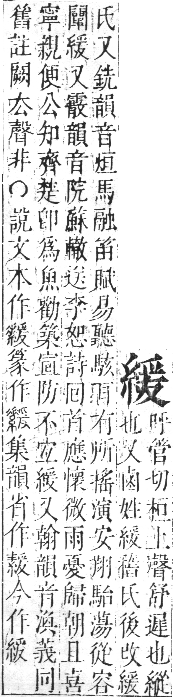 緩
呼管切桓上聲舒遲也縱
也又鹵姓緩舊氏後改緩
氏又銑韻音烜馬融笛賦易聽駭耳有所搖演安翔駘蕩從容
闡緩又霰韻音院蘇轍送李恕詩回首應懷微雨憂歸朝且喜
寧親便公知齊楚卽為魚勸築宣防不宜緩又翰韻音渙義同
舊註闕去聲非○說文本作篆作集韻省作緩今作緩